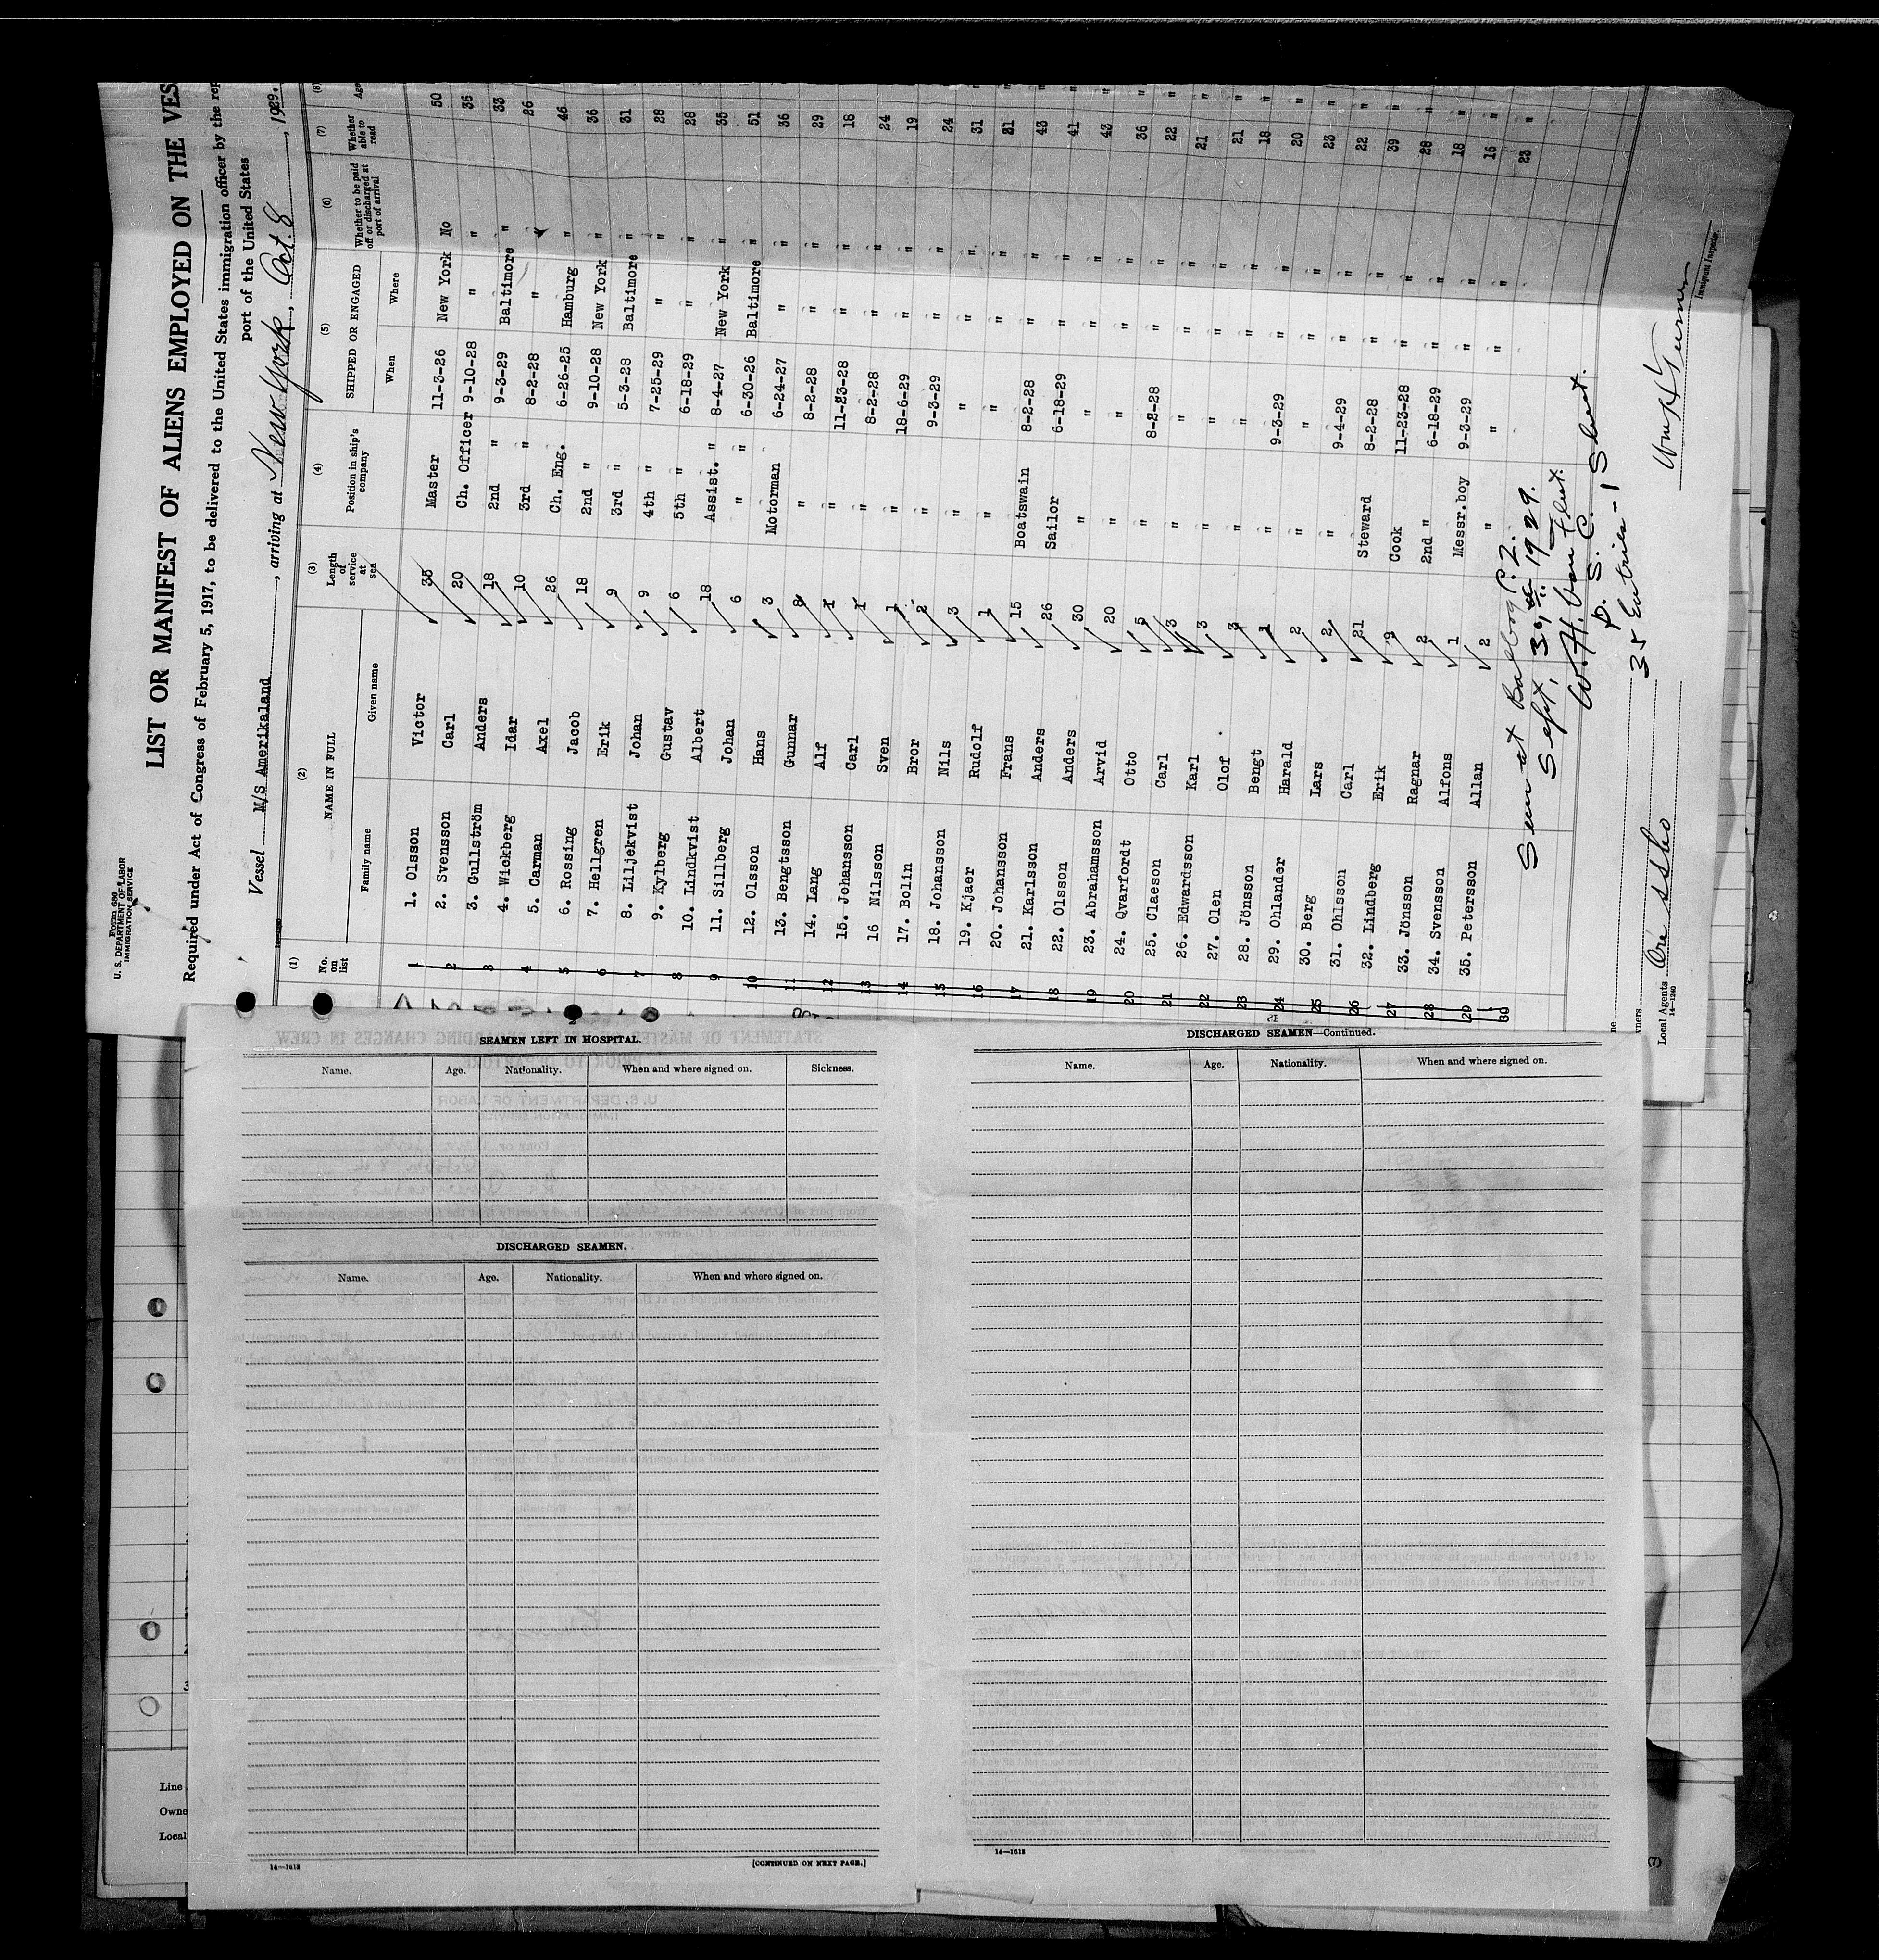 Form 689
U. S. DEPARTMENT OF LABOR
IMMIGRATION SERVICE
LIST OR MANIFEST OF ALIENS EMPLOYED ON THE VES
Required under Act of Congress of February 5, 1917, to be delivered to the United States immigration officer by the rep
port of the United States
Vessel M/S Amerikaland, arriving at New York, Oct. 8, 1929.
(1) (2) (3) (4) (5) (6) (7) (8)
No. on list NAME IN FULL Length of service at sea Position in ship's company SHIPPED OR ENGAGED Whether to be paid off or discharged at port of arrival Whether able to read Age
Family name Given name When Where
1 1. Olsson Victor 35 Master 11-3-26 New York No 50
2 2. Svensson Carl 20 Ch. Officer 9-10-28 " " 36
3 3. Gullström Anders 18 2nd " 9-3-29 Baltimore " 33
4 4. Wickberg Idar 10 3rd " 8-2-28 " " 26
5 5. Carman Axel 26 Ch. Eng. 6-26-25 Hamburg " 46
6 6. Rossing Jacob 18 2nd " 9-10-28 New York " 36
7 7. Hellgren Erik 9 3rd " 5-3-28 Baltimore " 31
8 8. Liljekvist Johan 9 4th " 7-25-29 " " 28
9 9. Kylberg Gustav 6 5th " 6-18-29 " " 28
10 10. Lindkvist Albert 18 Assist. " 8-4-27 New York " 35
11 11. Sillberg Johan 6 " " 6-30-26 Baltimore " 51
12 12. Olsson Hans 3 Motorman 6-24-27 " " 36
13 13. Bengtsson Gunnar 8 " 8-2-28 " " 29
14 14. Lang Alf 1 " 11-23-28 " " 18
15 15. Johansson Carl 1 " 8-2-28 " " 24
16 16 Nilsson Sven 1 " 18-6-29 " " 19
17 17. Bolin Bror 2 " 9-3-29 " " 24
18 18. Johansson Nils 3 " " " " 31
19 19. Kjaer Rudolf 1 " " " " 21
20 20. Johansson Frans 15 Boatswain 8-2-28 " " 43
21 21. Karlsson Anders 26 Sailor 6-18-29 " " 41
22 22. Olsson Anders 30 " " " " 43
23 23. Abrahamsson Arvid 20 " " " " 36
24 24. Qvarfordt Otto 5 " 8-2-28 " " 22
25 25. Claeson Carl 3 " " " " 21
26 26. Edwardsson Karl 3 " " " " 21
27 27. Olen Olof 3 " " " " 18
28 28. Jönsson Bengt 1 " 9-3-29 " " 20
29 29. Ohlander Harald 2 " " " " 23
30 30. Berg Lars 2 " 9-4-29 " " 22
31. Ohlsson Carl 21 Steward 8-2-28 " " 39
32. Lindberg Erik 9 Cook 11-23-28 " " 28
33. Jönsson Ragnar 2 2nd " 6-18-29 " " 18
34. Svensson Alfons 1 Messr.boy 9-3-29 " " 16
35. Petersson Allan 2 " " " " 23
Seen at Balboa C. Z.
Sept, 30, 1929.
35 Entries - 1 Sheet.
Immigrant Inspector.
wners
Local Agents
14—1240
SEAMEN LEFT IN HOSPITAL.
Name. Age. Nationality. When and where signed on. Sickness.
DISCHARGED SEAMEN.
Name. Age. Nationality. When and where signed on.
14—1613
[CONTINUED ON NEXT PAGE.]
DISCHARGED SEAMEN—Continued.
Name. Age. Nationality. When and where signed on.
14—1613
Line
Owne
Local